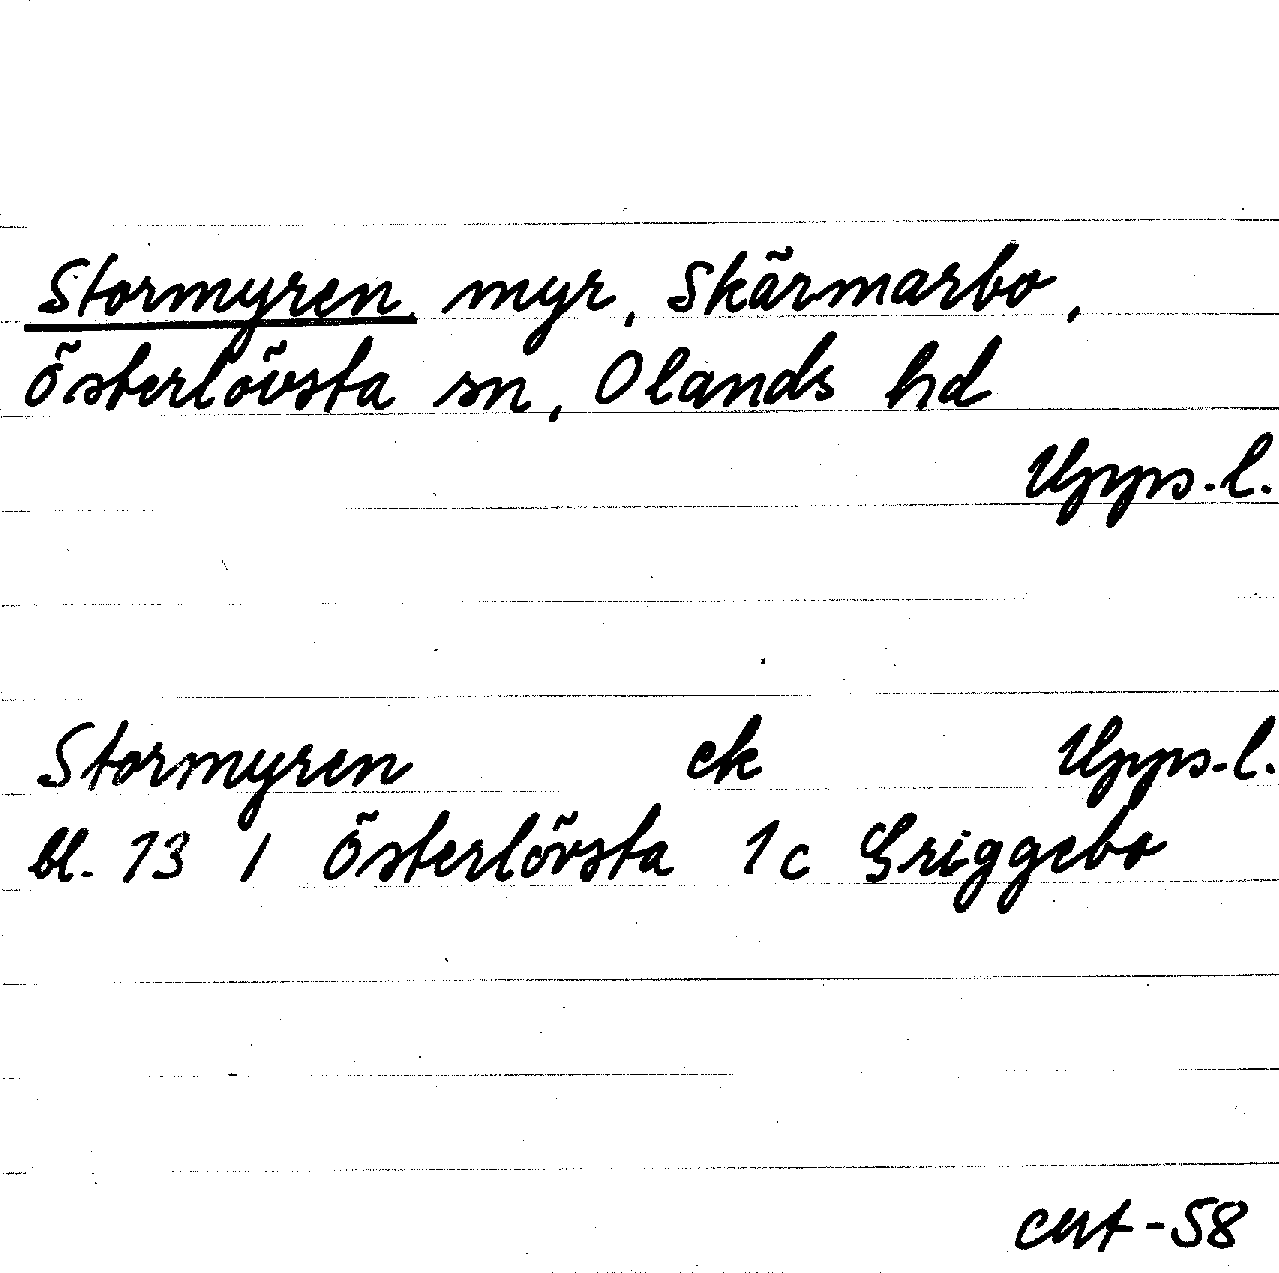 Stormyren, myr, Skärmarbo,
Österlövsta sn, Olands hd
Upps.l.
Stormyren ek Upps.l.
bl. 13 I Österlövsta 1c Griggebo
cert-58